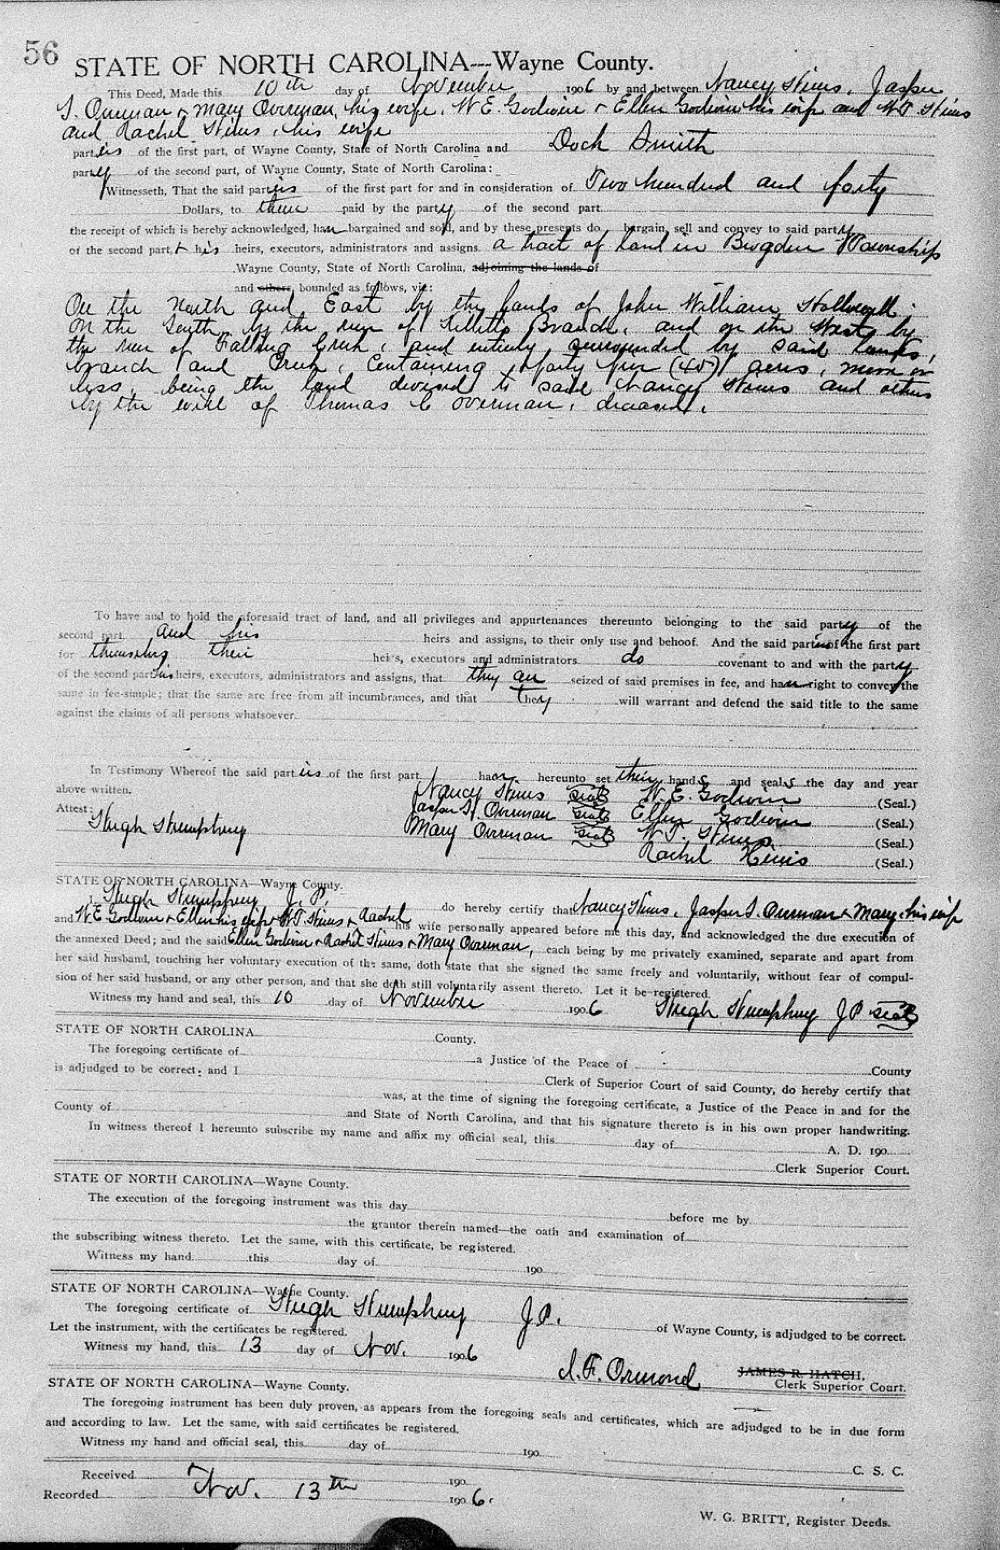 56
STATE OF NORTH CAROLINA---Wayne County.
This Deed, Made this 10th day of November 1906 by and between Nancy Hines, Jasper
T. Overman & Mary Overman, his wife, W. E. Godwin & Ellen Godwin his wife and W. T. Hines
and Rachel Hines, his wife
parties of the first part, of Wayne County, State of North Carolina and Dock Smith
party of the second part, of Wayne County, State of North Carolina:
Witnesseth, That the said parties of the first part for and in consideration of Two hundred and forty
Dollars, to them paid by the party of the second part
the receipt of which is hereby acknowledged, have bargained and sold, and by these presents do bargain, sell and convey to said party
of the second part, & his heirs, executors, administrators and assigns. a tract of land in Brogden Township
Wayne County, State of North Carolina, adjoining the lands of
and others, bounded as follows, viz:
On the North and East by the lands of John William
On the South by the run of Branch, and on the West by
the run of Falling Creek, and entirely surrounded by said lands,
branch and Creek, Containing forty (40) acres, more or
less, being the land devised to said Nancy Hines and others
by the will of Thomas C Overman, deceased.
To have and to hold the aforesaid tract of land, and all privileges and appurtenances thereunto belonging to the said party of the
second part, and his heirs and assigns, to their only use and behoof. And the said parties of the first part
for themselves their heirs, executors and administrators do covenant to and with the party
of the second part his heirs, executors, administrators and assigns, that they are seized of said premises in fee, and have right to convey the
same in fee-simple; that the same are free from all incumbrances, and that they will warrant and defend the said title to the same
against the claims of all persons whatsoever.
In Testimony Whereof the said parties of the first part have hereunto set their hands and seals the day and year
above written.
Nancy Hines Seal W. E. Godwin (Seal.)
Attest: Jasper T. Overman Seal Ellen Godwin (Seal.)
Hugh Humphrey Mary Overman Seal W. T. Hines (Seal.)
Rachel Hines (Seal.)
STATE OF NORTH CAROLINA—Wayne County.
I, Hugh Humphrey J. P. do hereby certify that Nancy Hines, Jasper T. Overman & Mary, his wife
and W E Godwin & Ellen his wife & W T Hines & Rachel his wife personally appeared before me this day, and acknowledged the due execution of
the annexed Deed; and the said Ellen Godwin & Rachel Hines & Mary Overman, each being by me privately examined, separate and apart from
her said husband, touching her voluntary execution of the same, doth state that she signed the same freely and voluntarily, without fear of compul-
sion of her said husband, or any other person, and that she doth still voluntarily assent thereto. Let it be registered.
Witness my hand and seal, this 10 day of November 1906 Hugh Humphrey JP Seal
STATE OF NORTH CAROLINA County.
The foregoing certificate of a Justice of the Peace of County
is adjudged to be correct; and I Clerk of Superior Court of said County, do hereby certify that
was, at the time of signing the foregoing certificate, a Justice of the Peace in and for the
County of and State of North Carolina, and that his signature thereto is in his own proper handwriting.
In witness thereof I hereunto subscribe my name and affix my official seal, this day of A. D. 190
Clerk Superior Court.
STATE OF NORTH CAROLINA—Wayne County.
The execution of the foregoing instrument was this day before me by
the grantor therein named—the oath and examination of
the subscribing witness thereto. Let the same, with this certificate, be registered.
Witness my hand this day of 190
STATE OF NORTH CAROLINA—Wayne County.
The foregoing certificate of Hugh Humphrey J.P. of Wayne County, is adjudged to be correct.
Let the instrument, with the certificates be registered.
Witness my hand, this 13 day of Nov. 1906
I. F. Ormond JAMES R. HATCH,
Clerk Superior Court.
STATE OF NORTH CAROLINA—Wayne County.
The foregoing instrument has been duly proven, as appears from the foregoing seals and certificates, which are adjudged to be in due form
and according to law. Let the same, with said certificates be registered.
Witness my hand and official seal, this day of 190
C. S. C.
Received 190
Recorded Nov. 13th 1906.
W. G. BRITT, Register Deeds.